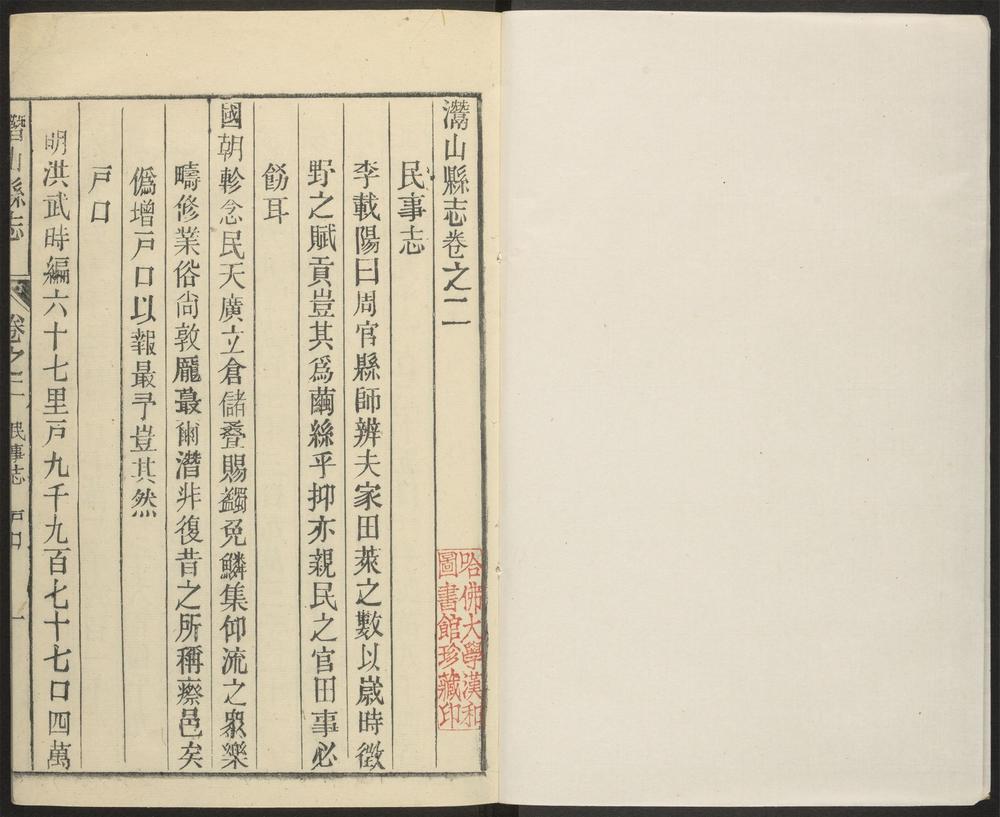 灊山縣志卷之二
民事志
李載陽曰周官縣師辨夫家田萊之數以歲時徵
野之賦貢豈其為繭絲乎抑亦親民之官田事必
飭耳
國朝軫念民天廣立倉儲疊賜蠲免鱗集仰流之衆樂
疇修業俗尚敦龐蕞爾潛非復昔之所稱瘵邑矣
僞增戸口以報最予豈其然
戸口
明洪武時編六十七里戸九千九百七十七口四萬
潛山縣志
卷之二
民事志
戸口
一
哈佛大學漢和
圖書館珍藏印